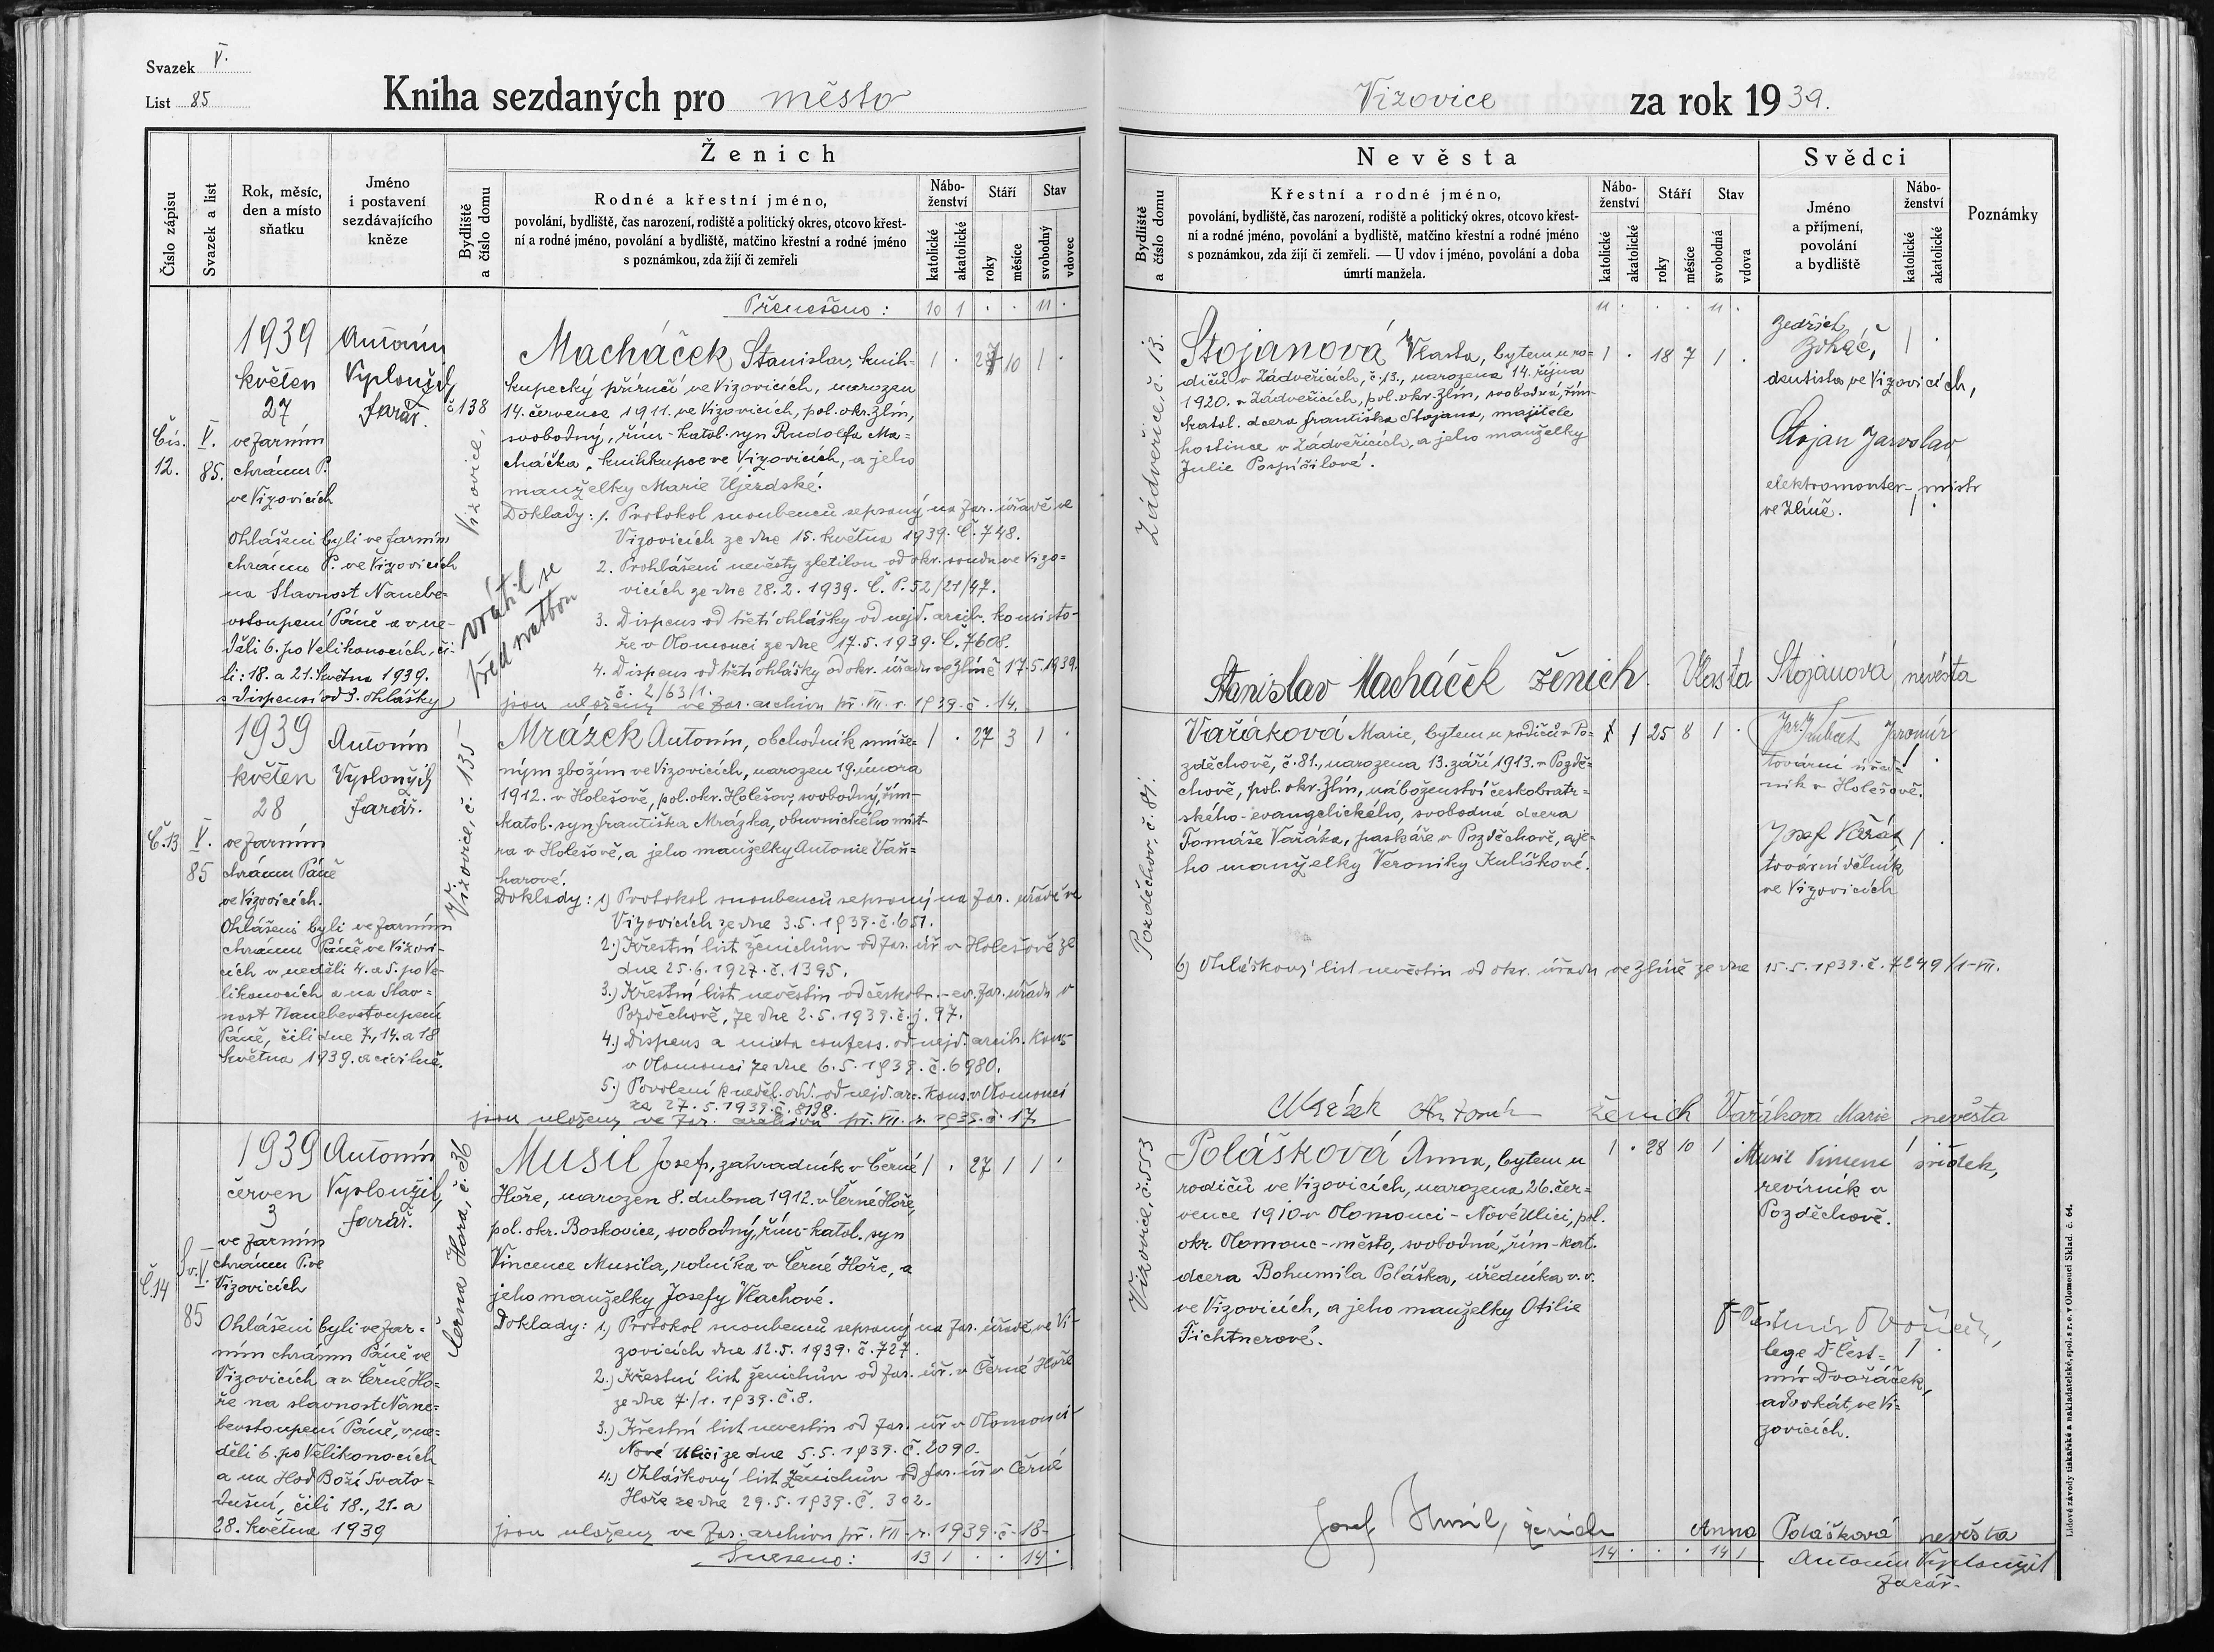 Svazek V.
List 85
Kniha sezdaných pro město
Číslo zápisu
Svazek a list
Rok, měsíc,
den a místo
sňatku
Jméno
i postavení
sezdávajícího
kněze
Ženich
Bydliště
a číslo domu
Rodné a křestní jméno,
povolání, bydliště, čas narození, rodiště a politický okres, otcovo křest-
ní a rodné jméno, povolání a bydliště, matčino křestní a rodné jméno
s poznámkou, zda žijí či zemřeli
Nábo-
ženství
katolické
akatolické
Stáří
roky
měsíce
Stav
svobodný
vdovec
Přenešeno: 10 1 . . 11 .
Čís.
12.
V.
85.
1939
květen
27
ve farním
chrámu P.
ve Vizovicích
Ohlášeni byli ve farním
chrámu P. ve Vizovicích
na Slavnost Nanebe-
vstoupení Páně a v ne-
děli 6. po Velikonocích, či-
li: 18. a 21. května 1939.
s dispensí od 3. ohlášky
Antonín
Vyploužil,
farář.
Vizovice, č 138
vrátil se
před svatbou
Macháček Stanislav, knih- 1 . 27 10 1 .
kupecký příručí ve Vizovicích, narozen
14. července 1911. ve Vizovicích, pol. okr. Zlín,
svobodný, řím-katol. syn Rudolfa Ma=
cháčka, knihkupce ve Vizovicích, a jeho
manželky Marie Újezdské.
Doklady: 1. Protokol snoubenců sepsaný na far. úřadě ve
Vizovicích ze dne 15. května 1939. Č. 748.
2. Prohlášení nevěsty zletilou od okr. soudu ve Vizo=
vicích ze dne 28.2. 1939. Č. P. 52/21/47.
3. Dispens od třetí ohlášky od nejd. arcib. konsisto-
ře v Olomouci ze dne 17.5.1939. Č. 7608.
4. Dispens od třetí ohlášky od okr. úřadu ve Zlíně 17.5.1939.
č. 2/63/1.
jsou uloženy ve far. archivu př. VII. r. 1939. č. 14.
Č. 13
V.
85
1939
květen
28
ve farním
chrámu Páně
ve Vizovicích.
Ohlášeni byli ve farním
chrámu Páně ve Vizovi-
cích v neděli 4. a 5. po Ve-
likonocích a na Slav=
nost Nanebevstoupení
Páně, čili dne 7., 14. a 18
května 1939. a civilně.
Antonín
Vyploužil
farář.
Vizovice, č. 135
Mrázek Antonín, obchodník smíše- 1 . 27 3 1 .
ným zbožím ve Vizovicích, narozen 19. února
1912. v Holešově, pol. okr. Holešov, svobodný, řím-
katol. syn Františka Mrázka, obuvnického mist-
ra v Holešově, a jeho manželky Antonie Vaň=
harové.
Doklady: 1) Protokol snoubenců sepsaný na far. úřadě ve
Vizovicích ze dne 3.5.1939. č. 651.
2.) Křestní list ženichův od far. úř. v Holešově ze
dne 25.6.1927. č. 1395.
3.) Křestní list nevěstin od českobr.-ev. far. úřadu v
Pozděchově, ze dne 2.5.1939. č. j. 97.
4.) Dispens a mixta confess. od nejd. arcib. kons-
v Olomouci ze dne 6.5.1939. č. 6980.
5.) Povolení k neděl. odd. od nejd. arc. kons. v Olomouci
ze 27.5.1939. č. 8198.
jsou uloženy ve far. archivu př. VII. r. 1939. č. 17
Č. 14
Sv. V.
85
1939
červen
3
ve farním
chrámu P. ve
Vizovicích
Ohlášeni byli ve far=
ním chrámu Páně ve
Vizovicích a v Černé Ho=
ře na slavnost Nane=
bevstoupení Páně, v ne=
děli 6. po Velikonocích
a na Hod Boží Svato=
dušní, čili 18., 21. a
28. května 1939
Antonín
Vyploužil,
farář.
Černá Hora, č. 36
Musil Josef, zahradník v Černé 1 . 27 1 1 .
Hoře, narozen 8. dubna 1912. v Černé Hoře,
pol. okr. Boskovice, svobodný, řím-katol. syn
Vincence Musila, rolníka v Černé Hoře, a
jeho manželky Josefy Vlachové.
Doklady: 1.) Protokol snoubenců sepsaný na far. úřadě, ve Vi-
zovicích dne 12.5.1939. č. 727.
2.) Křestní list ženichův od far. úř. v Černé Hoře
ze dne 7./1. 1939. č. 8.
3.) Křestní list nevěstin od far. úř v Olomouci-
Nové Ulici ze dne 5.5.1939. č. 2090.
4.) Ohláškový list ženichův od far. úř v Černé
Hoře ze dne 29.5.1939. č. 302.
jsou uloženy ve far. archivu př. VII. r. 1939. č. 18-
Sneseno: 13 1 . . 14 .
Vizovice za rok 1939.
Nevěsta
Bydliště
a číslo domu
Křestní a rodné jméno,
povolání, bydliště, čas narození, rodiště a politický okres, otcovo křest-
ní a rodné jméno, povolání a bydliště, matčino křestní a rodné jméno
s poznámkou, zda žijí či zemřeli. — U vdov i jméno, povolání a doba
úmrtí manžela.
Nábo-
ženství
katolické
akatolické
Stáří
roky
měsíce
Stav
svobodná
vdova
Svědci
Jméno
a příjmení,
povolání
a bydliště
Nábo-
ženství
katolické
akatolické
Poznámky
11 . . . 11 .
Zádveřice, č. 13.
Stojanová Vlasta, bytem u ro= 1 . 18 7 1 .
dičů v Zádveřicích, č. 13., narozena 14. října
1920. v Zádveřicích, pol. okr. Zlín, svobodná, řím-
katol. dcera Františka Stojana, majitele
hostince v Zádveřicích, a jeho manželky
Julie Pospíšilové.
Jedřich
1 .
dentista ve Vizovicích,
Stojan Jaroslav
elektromonter-, mistr
ve Zlíně. 1 .
Stanislav Macháček ženich. Vlasta Stojanová nevěsta
Pozděchov, č. 81.
Vařáková Marie, bytem u rodičů v Po= 1 25 8 1 .
zděchově, č. 81., narozena 13. září 1913. v Pozdě-
chově, pol. okr. Zlín, náboženství českobratr=
ského-evangelického, svobodná dcera
Tomáše Vařáka, paskáře v Pozděchově, a je-
ho manželky Veroniky Kulíškové.
Jaromír
tovární úřed= 1 .
ník v Holešově.
Josef Vařák 1 .
tovární dělník
ve Vizovicích
6) Ohláškový list nevěstin od okr. úřadu ve Zlíně ze dne 15.5.1939. č. 7249/1-VII.
Mrázek Antonín ženich Vařákova Marie nevěsta
Vizovice, č. 553
Polášková Anna, bytem u 1 . 28 10 1
rodičů ve Vizovicích, narozena 26. čer=
vence 1910 v Olomouci-Nové Ulici, pol.
okr. Olomouc-město, svobodná, řím-kat.
dcera Bohumila Poláška, úředníka v. v.
ve Vizovicích, a jeho manželky Otilie
Fichtnerové.
Musil Vincenc 1 svědek,
revírník v
Pozděchově.
lege Dr Čest= 1 .
mír Dvořáček,
advokát, ve Vi=
zovicích.
Josef Musil, ženich Anna Polášková nevěsta
14 . . . 14 1
Antonín Vyploužil
farář.
Lidové závody tiskařské a nakladatelské, spol. s r. o. v Olomouci Sklad. č. 64.